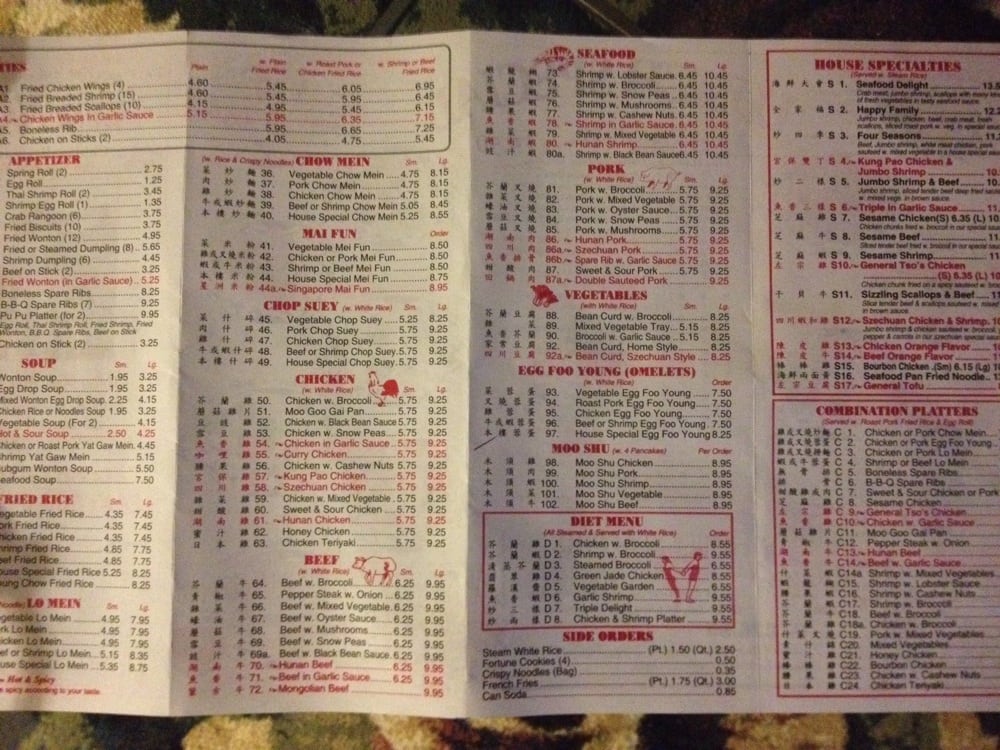 TIES
Plain
w. Plain Fried Rice
w. Roast Pork or Chicken Fried Rice
w. Shrimp or Beef Fried Rice
A1. Fried Chicken Wings (4) 4.60 5.45 6.05 6.95
A2. Fried Breaded Shrimp (15)
A3. Fried Breaded Scallops (10)
A4. Chicken Wings In Garlic Sauce 5.15 5.95 6.35 7.15
A5. Boneless Rib 5.95 6.65 7.25
A6. Chicken on Sticks (2) 4.05 4.75 5.45
APPETIZER
Spring Roll (2) 2.75
Egg Roll 1.25
Thai Shrimp Roll (2) 3.45
Shrimp Egg Roll (1) 1.35
Crab Rangoon (6) 3.75
Fried Biscuits (10) 3.75
Fried Wonton (12) 4.95
Fried or Steamed Dumpling (8) 5.65
Shrimp Dumpling (6) 4.45
Beef on Stick (2) 3.25
Fried Wonton (in Garlic Sauce) 5.25
Boneless Spare Ribs 8.25
B-B-Q Spare Ribs (7) 9.25
Pu Pu Platter (for 2) 9.95
Egg Roll, Thai Shrimp Roll, Fried Shrimp, Fried
Wonton, B.B.Q. Spare Ribs, Beef on Stick
Chicken on Stick (2) 3.25
SOUP Sm. Lg.
Wonton Soup 1.95 3.25
Egg Drop Soup 1.95 3.25
Mixed Wonton Egg Drop Soup 2.25 4.15
Chicken Rice or Noodles Soup 1.95 3.25
Vegetable Soup (For 2) 4.15
Hot & Sour Soup 2.50 4.25
Chicken or Roast Pork Yat Gaw Mein 4.45
Shrimp Yat Gaw Mein 5.15
Subgum Wonton Soup 5.50
Seafood Soup 7.50
FRIED RICE Sm. Lg.
Vegetable Fried Rice 4.35 7.45
Pork Fried Rice 4.35 7.45
Chicken Fried Rice 4.35 7.45
Shrimp Fried Rice 4.85 7.75
Beef Fried Rice 4.85 7.75
House Special Fried Rice 5.25 8.25
Young Chow Fried Rice 8.25
Noodle) LO MEIN Sm. Lg.
Vegetable Lo Mein 4.95 7.95
Pork Lo Mein 4.95 7.95
Chicken Lo Mein 4.95 7.95
Beef or Shrimp Lo Mein 5.15 8.35
House Special Lo Mein 5.35 8.75
Hot & Spicy
spicy according to your taste.
(w. Rice & Crispy Noodles) CHOW MEIN Sm. Lg.
菜炒麵 36. Vegetable Chow Mein 4.75 8.15
肉炒麵 37. Pork Chow Mein 4.75 8.15
雞炒麵 38. Chicken Chow Mein 4.75 8.15
牛或蝦炒麵 39. Beef or Shrimp Chow Mein 5.05 8.45
本樓炒麵 40. House Special Chow Mein 5.25 8.55
MAI FUN Order
菜米粉 41. Vegetable Mei Fun 8.50
雞或叉燒米粉 42. Chicken or Pork Mei Fun 8.50
蝦或牛米粉 43. Shrimp or Beef Mei Fun 8.50
本樓米粉 44. House Special Mei Fun 8.75
星洲米粉 44a. Singapore Mai Fun 8.95
CHOP SUEY (w. White Rice) Sm. Lg.
菜什碎 45. Vegetable Chop Suey 5.25 8.25
肉什碎 46. Pork Chop Suey 5.75 9.25
雞什碎 47. Chicken Chop Suey 5.75 9.25
牛或蝦什碎 48. Beef or Shrimp Chop Suey 5.75 9.25
本樓什碎 49. House Special Chop Suey 5.75 9.25
CHICKEN
(w. White Rice) Sm. Lg.
芥蘭雞 50. Chicken w. Broccoli 5.75 9.25
蘑菇雞片 51. Moo Goo Gai Pan 5.75 9.25
豆豉雞 52. Chicken w. Black Bean Sauce 5.75 9.25
雪豆雞 53. Chicken w. Snow Peas 5.75 9.25
魚香雞 54. Chicken in Garlic Sauce 5.75 9.25
咖哩雞 55. Curry Chicken 5.75 9.25
腰果雞 56. Chicken w. Cashew Nuts 5.75 9.25
宮保雞 57. Kung Pao Chicken 5.75 9.25
四川雞 58. Szechuan Chicken 5.75 9.25
雜菜雞 59. Chicken w. Mixed Vegetable 5.75 9.25
甜酸雞 60. Sweet & Sour Chicken 5.75 9.25
湖南雞 61. Hunan Chicken 5.75 9.25
蜜汁雞 62. Honey Chicken 5.75 9.25
日本雞 63. Chicken Teriyaki 5.75 9.25
BEEF
(w. White Rice) Sm. Lg.
芥蘭牛 64. Beef w. Broccoli 6.25 9.95
青椒牛 65. Pepper Steak w. Onion 6.25 9.95
雜菜牛 66. Beef w. Mixed Vegetable 6.25 9.95
蠔油牛 67. Beef w. Oyster Sauce 6.25 9.95
蘑菇牛 68. Beef w. Mushrooms 6.25 9.95
雪豆牛 69. Beef w. Snow Peas 6.25 9.95
豉汁牛 69a. Beef w. Black Bean Sauce 6.25 9.95
湖南牛 70. Hunan Beef 6.25 9.95
魚香牛 71. Beef in Garlic Sauce 6.25 9.95
蒙古牛 72. Mongolian Beef 9.95
SEAFOOD
(w. White Rice) Sm. Lg.
蝦龍糊 73. Shrimp w. Lobster Sauce 6.45 10.45
芥蘭蝦 74. Shrimp w. Broccoli 6.45 10.45
雪豆蝦 75. Shrimp w. Snow Peas 6.45 10.45
蘑菇蝦 76. Shrimp w. Mushrooms 6.45 10.45
腰果蝦 77. Shrimp w. Cashew Nuts 6.45 10.45
魚香蝦 78. Shrimp in Garlic Sauce 6.45 10.45
雜菜蝦 79. Shrimp w. Mixed Vegetable 6.45 10.45
湖南蝦 80. Hunan Shrimp 6.45 10.45
豉汁蝦 80a. Shrimp w. Black Bean Sauce 6.45 10.45
PORK
(w. White Rice) Sm. Lg.
芥蘭叉燒 81. Pork w. Broccoli 5.75 9.25
雜菜叉燒 82. Pork w. Mixed Vegetable 5.75 9.25
蠔油叉燒 83. Pork w. Oyster Sauce 5.75 9.25
雪豆叉燒 84. Pork w. Snow Peas 5.75 9.25
蘑菇叉燒 85. Pork w. Mushrooms 5.75 9.25
湖南肉 86. Hunan Pork 5.75 9.25
四川肉 86a. Szechuan Pork 5.75 9.25
魚香排骨 86b. Spare Rib w. Garlic Sauce 5.75 9.25
甜酸肉 87. Sweet & Sour Pork 5.75 9.25
回鍋肉 87a. Double Sauteed Pork 9.25
VEGETABLES
(with White Rice) Sm. Lg.
芥蘭豆腐 88. Bean Curd w. Broccoli 8.25
雜菜 89. Mixed Vegetable Tray 5.15 8.25
魚香芥蘭 90. Broccoli w. Garlic Sauce 5.15 8.25
家常豆腐 92. Bean Curd, Home Style 8.25
四川豆腐 92a. Bean Curd, Szechuan Home Style 8.25
EGG FOO YOUNG (OMELETS)
(w. White Rice) Order
菜蓉蛋 93. Vegetable Egg Foo Young 7.50
叉燒蓉蛋 94. Roast Pork Egg Foo Young 7.50
雞蓉蛋 95. Chicken Egg Foo Young 7.50
蝦或牛蓉蛋 96. Beef or Shrimp Egg Foo Young 7.50
本樓蓉蛋 97. House Special Egg Foo Young 8.25
MOO SHU (w. 4 Pancakes) Per Order
木須雞 98. Moo Shu Chicken 8.95
木須肉 99. Moo Shu Pork 8.95
木須蝦 100. Moo Shu Shrimp 8.95
木須菜 101. Moo Shu Vegetable 8.95
木須牛 102. Moo Shu Beef 8.95
DIET MENU
(All Steamed & Served with White Rice) Order
芥蘭雞 D 1. Chicken w. Broccoli 8.55
芥蘭蝦 D 2. Shrimp w. Broccoli 9.55
清蒸芥蘭 D 3. Steamed Broccoli 6.55
D 4. Green Jade Chicken 8.55
羅漢齋 D 5. Vegetable Garden 6.55
魚香蝦 D 6. Garlic Shrimp 9.55
炒三樣 D 7. Triple Delight 9.55
炒兩樣 D 8. Chicken & Shrimp Platter 9.55
SIDE ORDERS
Steam White Rice (Pt.) 1.50 (Qt.) 2.50
Fortune Cookies (4) 0.50
Crispy Noodles (Bag) 0.35
French Fries (Pt.) 1.75 (Qt.) 3.00
Can Soda 0.85
HOUSE SPECIALTIES
(Served w. Steam Rice)
海鮮大會 S 1. Seafood Delight 13.
Crab meat, jumbo shrimp, scallops with
of fresh vegetables in tasty seafood sauce.
全家福 S 2. Happy Family 12.
Jumbo shrimp, chicken, beef, crab meat, fresh
scallops, sliced roast pork w. veg. in special
炒四季 S 3. Four Seasons 11.
Beef, Jumbo shrimp, white meat chicken, pork
sauteed w. mixed vegetable in a house special
宮保雙丁 S 4. Kung Pao Chicken &
Jumbo Shrimp
炒二樣 S 5. Jumbo Shrimp & Beef
Jumbo shrimp, sliced tender beef deep fried
w. mixed vegs. in brown sauce
魚香三樣 S 6. Triple in Garlic Sauce
芝麻雞 S 7. Sesame Chicken (S) 6.35 (L)
Chicken chunks fried w. broccoli in our special
芝麻牛 S 8. Sesame Beef
Sliced tender beef fried w. broccoli in our special
芝麻蝦 S 9. Sesame Shrimp
左宗雞 S10. General Tso's Chicken
(S) 6.35 (L)
Chicken chunk fried on a spicy sauce w. broccoli
干貝牛 S11. Sizzling Scallops & Beef
Tender slices of beef & scallops sauteed w.
四川蝦和雞 S12. Szechuan Chicken & Shrimp
Jumbo shrimp & chicken sauteed w. broccoli
pepper & carrots in our Szechuan special sauce
陳皮雞 S13. Chicken Orange Flavor
陳皮牛 S14. Beef Orange Flavor
S15. Bourbon Chicken (Sm) 6.15 (Lg)
海鮮兩面黃 S16. Seafood Pan Fried Noodle
左宗豆腐 S17. General Tofu
COMBINATION PLATTERS
(Served w. Roast Pork Fried Rice & Egg Roll)
雞或叉燒炒麵 C 1. Chicken or Pork Chow Mein
雞或叉燒蓉蛋 C 2. Chicken or Pork Egg Foo Young
雞或叉燒撈麵 C 3. Chicken or Pork Lo Mein
蝦或牛撈麵 C 4. Shrimp or Beef Lo Mein
無骨排 C 5. Boneless Spare Ribs
排骨 C 6. B-B-Q Spare Ribs
甜酸雞或肉 C 7. Sweet & Sour Chicken or Pork
芝麻雞 C 8. Sesame Chicken
左宗雞 C 9. General Tso's Chicken
魚香雞 C10. Chicken w. Garlic Sauce
蘑菇雞片 C11. Moo Goo Gai Pan
青椒牛 C12. Pepper Steak w. Onion
湖南牛 C13. Hunan Beef
魚香牛 C14. Beef w. Garlic Sauce
什菜蝦 C14a Shrimp w. Mixed Vegetables
蝦龍糊 C15. Shrimp w. Lobster Sauce
腰果蝦 C16. Shrimp w. Cashew Nuts
芥蘭蝦 C17. Shrimp w. Broccoli
芥蘭牛 C18. Beef w. Broccoli
芥蘭雞 C18a. Chicken w. Broccoli
什菜叉燒 C19. Pork w. Mixed Vegetables
什菜 C20. Mixed Vegetables
蜜汁雞 C21. Honey Chicken
C22. Bourbon Chicken
腰果雞 C23. Chicken w. Cashew Nuts
日本雞 C24 Chicken Teriyaki